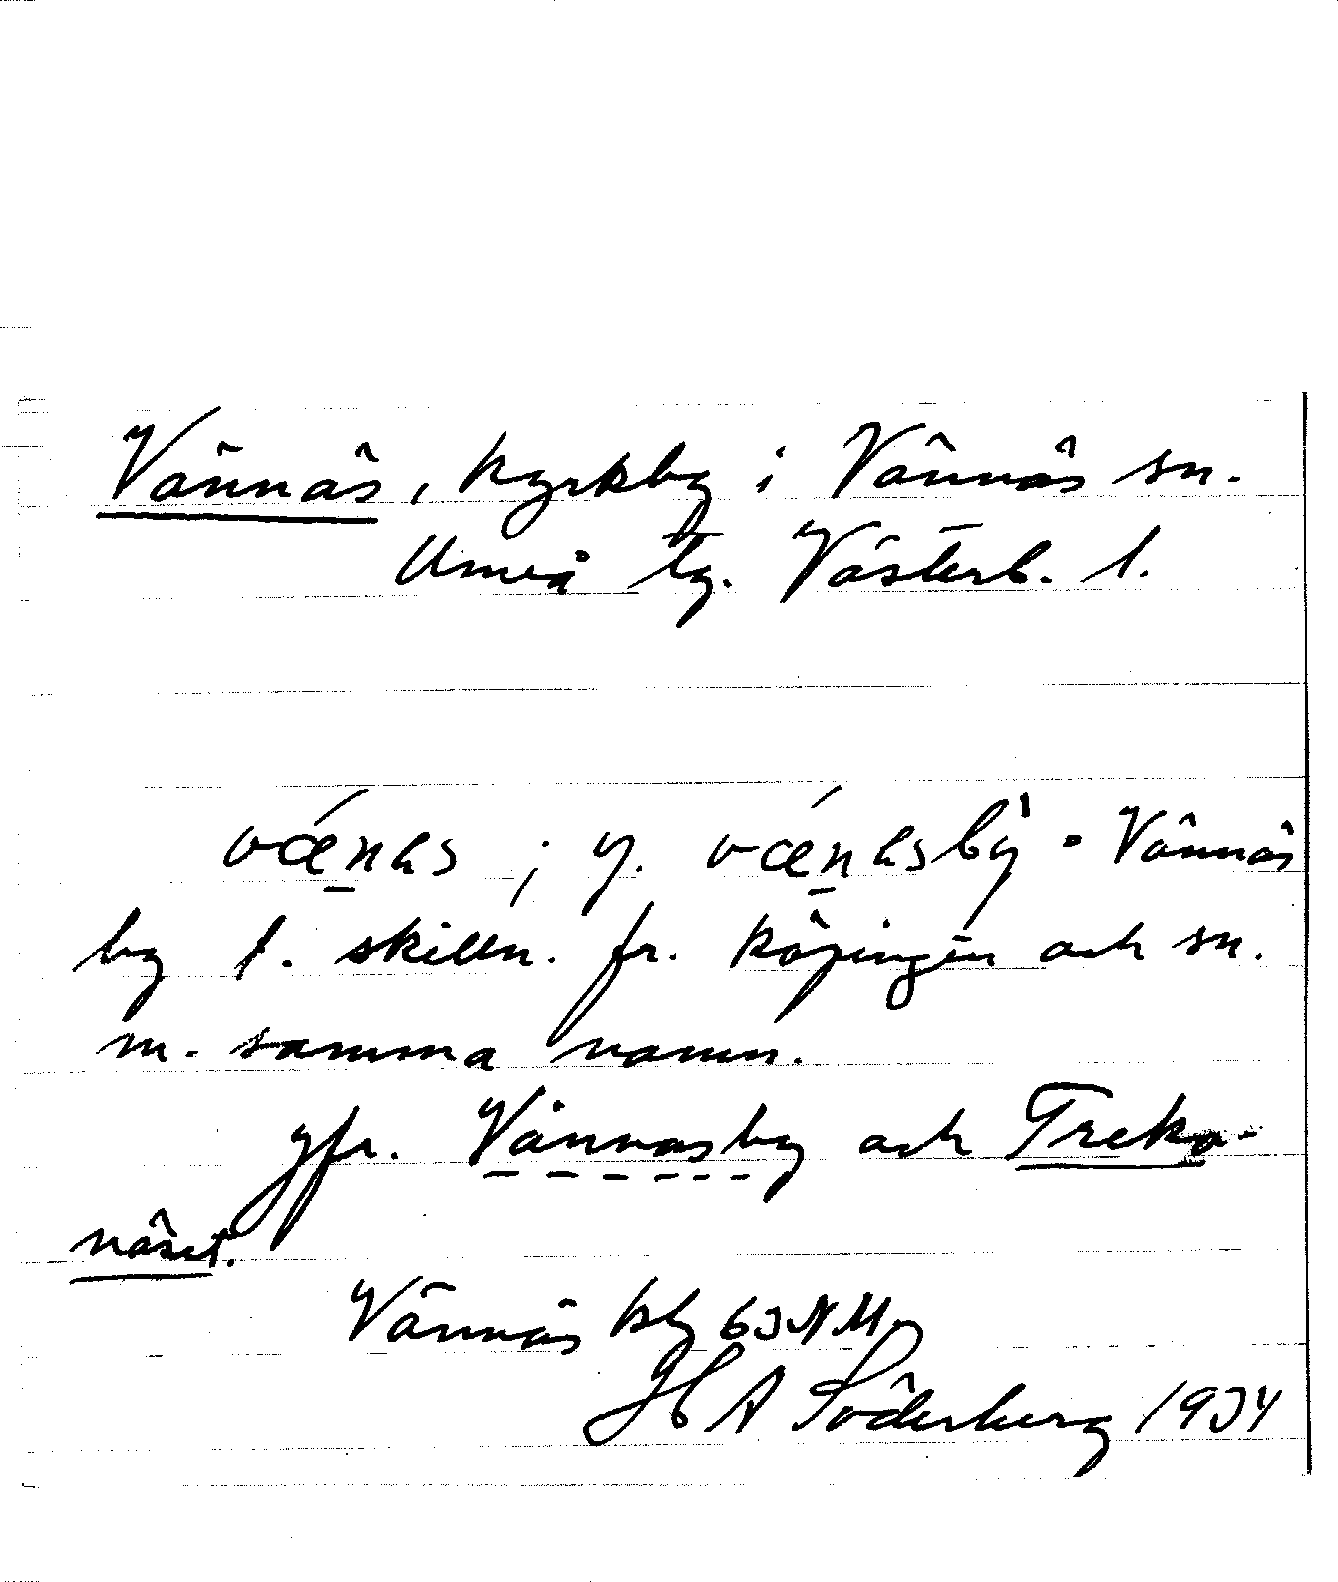 Vännäs, kyrkby i Vännäs sn.
Umeå tg. Västerb. l.
vǽn̲as; y. vǽn̲asbỳ = Vännäs
by t. skilln. fr. köpingen och sn.
m. samma namn.
jfr. Vännäsby och Treko-
näset.
Vännäs kby 63 NM
H A Söderberg 1934